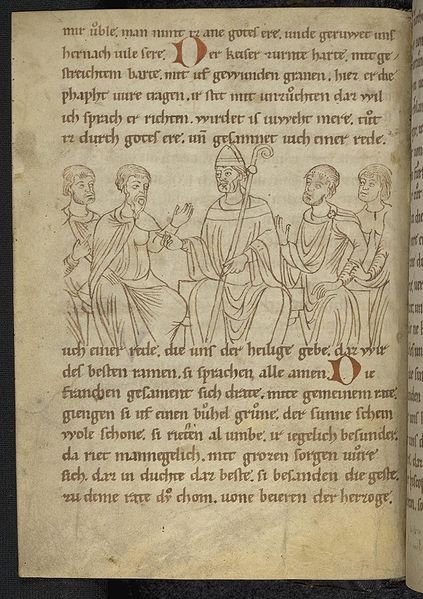 mir ůble. man nimt iz ane gotes ere. unde geruwet uns
hernach uile sere. Der keiser zurnte harte. mit ge-
streichtem barte. mit uf gewunden granen. hiez er die
phapht uure tragen. ir stet mit unzůchten daz wil
ich sprach er richten. wirdet is iuweht mere. tůt
iz durch gotes ere. uñ gesamnet uich einer rede.
uich einer rede. die uns der heilige gebe. daz wir
des besten ramen. si sprachen alle amen. Die
franchen gesament sich drate. mite gemeinem rate.
giengen si uf einen bůhel grůne. der sunne schein
wole schone. si rieten al umbe. ir iegelich besunder.
da riet mannegelich. mit grozen sorgen uůre
sich. daz in duchte daz beste. si besanden die geste.
zu deme rate do chom. uone beieren der herzoge.